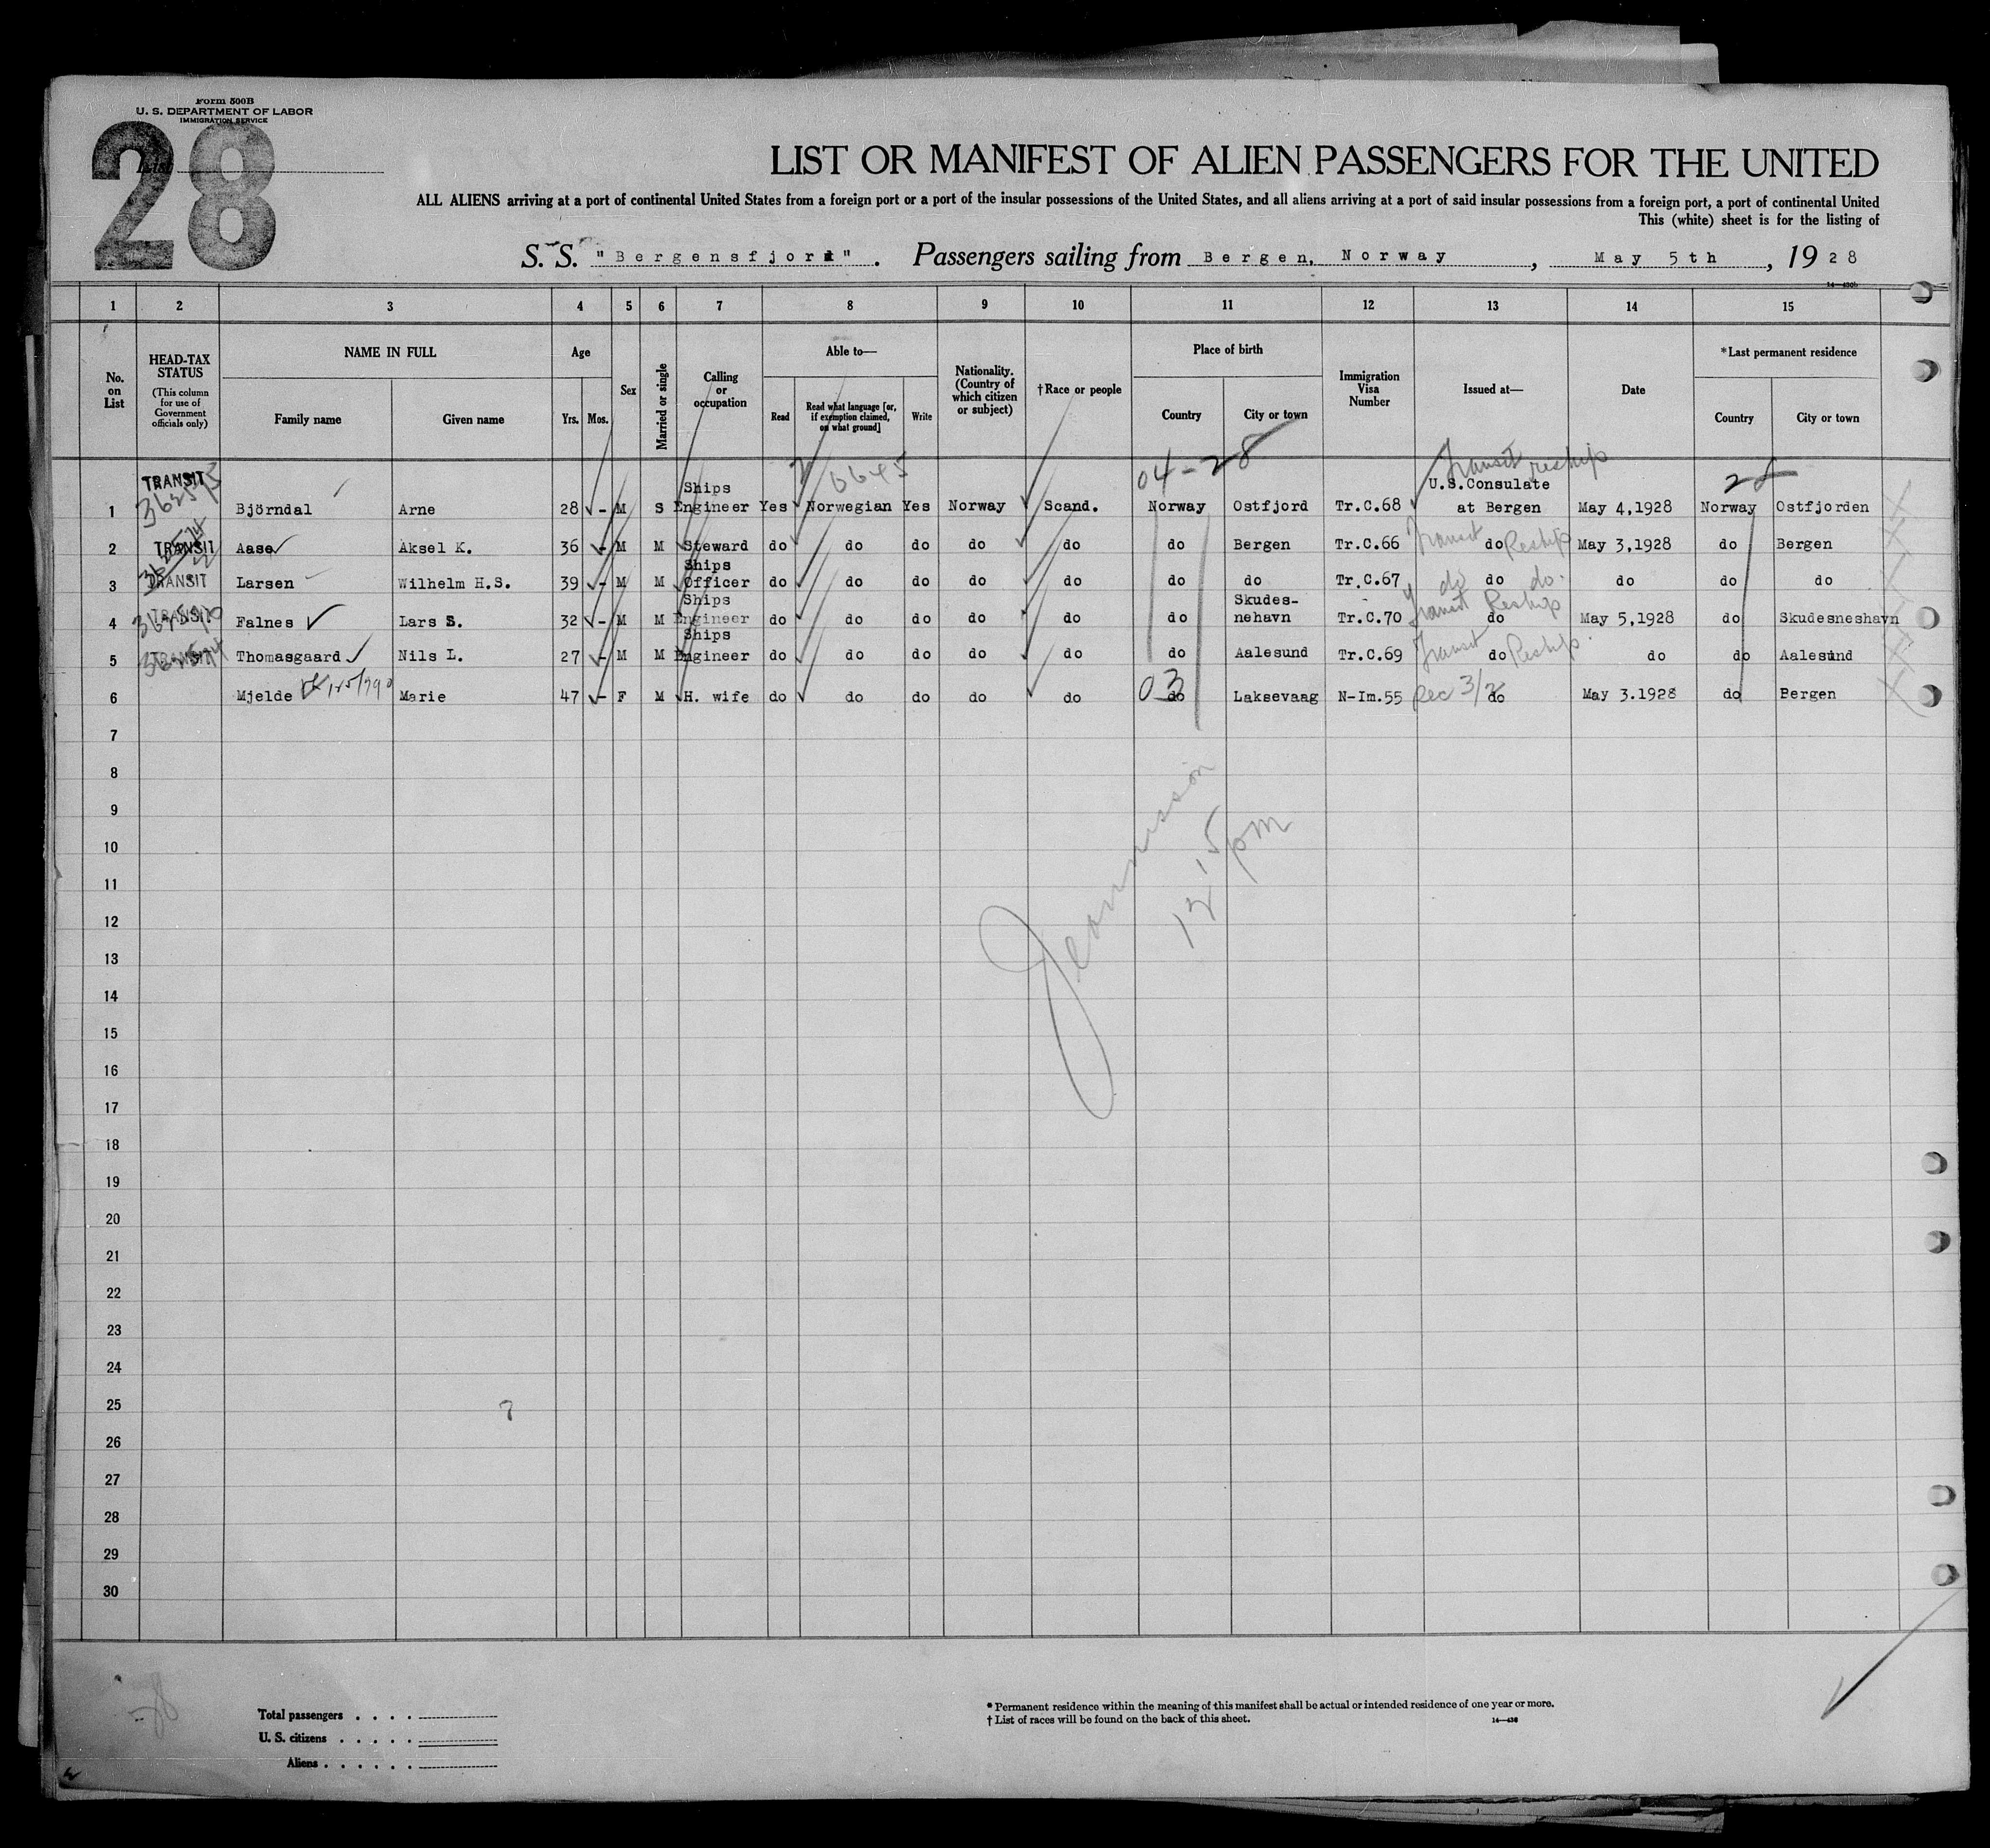 Form 500B
U. S. DEPARTMENT OF LABOR
IMMIGRATION SERVICE
28
List
LIST OR MANIFEST OF ALIEN PASSENGERS FOR THE UNITED
ALL ALIENS arriving at a port of continental United States from a foreign port or a port of the insular possessions of the United States, and all aliens arriving at a port of said insular possessions from a foreign port, a port of continental United
This (white) sheet is for the listing of
S. S. "Bergensfjord". Passengers sailing from Bergen, Norway, May 5th, 1928
1 2 3 4 5 6 7 8 9 10 11 12 13 14 15
No. on List
HEAD-TAX STATUS (This column for use of Government officials only)
NAME IN FULL
Family name Given name
Age
Yrs. Mos.
Sex
Married or single
Calling or occupation
Able to—
Read Read what language [or, if exemption claimed, on what ground] Write
Nationality. (Country of which citizen or subject)
†Race or people
Place of birth
Country City or town
Immigration Visa Number
Issued at—
Date
*Last permanent residence
Country City or town
04-28 Transit reship 28
1 TRANSIT Björndal Arne 28 - M S Ships Engineer Yes Norwegian Yes Norway Scand. Norway Ostfjord Tr.C.68 U.S.Consulate at Bergen May 4,1928 Norway Ostfjorden
2 TRANSIT Aase Aksel K. 36 - M M Steward do do do do do do Bergen Tr.C.66 Transit do Reship May 3,1928 do Bergen
3 TRANSIT Larsen Wilhelm H.S. 39 - M M Ships Officer do do do do do do do Tr.C.67 do do do. do do do
4 TRANSIT Falnes Lars S. 32 - M M Ships Engineer do do do do do do Skudes-nehavn Tr.C.70 Transit Reship do May 5,1928 do Skudesneshavn
5 TRANSIT Thomasgaard Nils L. 27 - M M Ships Engineer do do do do do do Aalesund Tr.C.69 Transit do Reship do do Aalesund
6 Mjelde Marie 47 - F M H. wife do do do do do 03 do Laksevaag N-Im.55 Rec 3/2 do May 3.1928 do Bergen
7
8
9
10
11
12
13
14
15
16
17
18
19
20
21
22
23
24
25
26
27
28
29
30
Total passengers
U. S. citizens
Aliens
* Permanent residence within the meaning of this manifest shall be actual or intended residence of one year or more.
† List of races will be found on the back of this sheet.